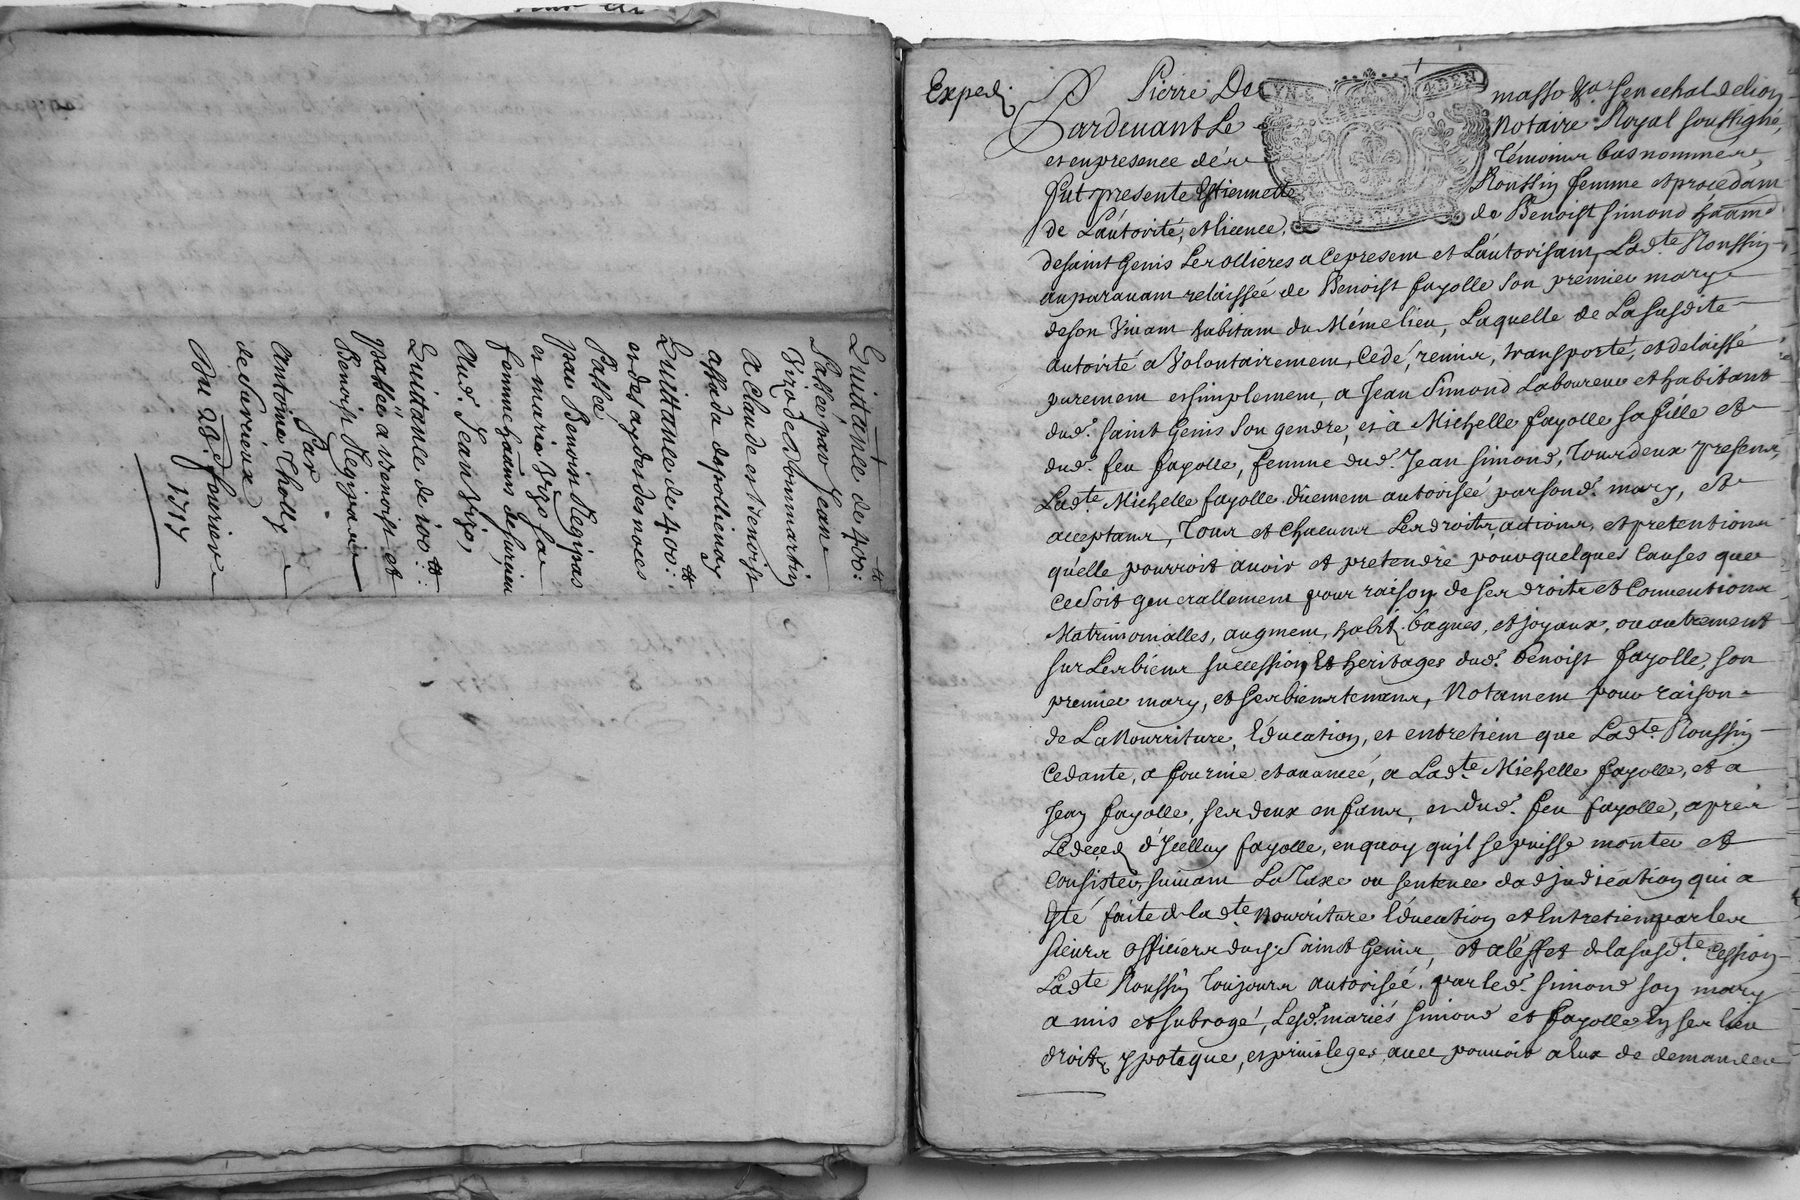 Quittance de 400:tt
Passée par Jean
Vizo de Dommartin
A Claude et benoist
Quittance de 400:tt
et des aydes de noces
Passée
par Benoist
et marie Vize sa
femme habitans de surieu
Aud. Jean Vize,
Quittance de 100:tt
passée a benoist et
Benoist
Par
Antoine Tholly
de Surieux
Du 28e fevrier
1717
Exped.
Pierre De masso senechal de lion
Pardevant Le Notaire Royal soussigné,
et en presence des témoins bas nommés,
fut presente Estiennette Roussin femme et procedam
de L'autorité, et licence, de Benoist simond
de saint Genis Les ollieres a ce presem et L'autorisam, Ladte Roussin
auparavam relaissée de Benoist fayolle son premier mary
de son Vivam habitam du Méme lieu, Laquelle de La susdite
autorité a Volontairemem, Cedé, remis, transporté, et delaissé
puremem et simplemem, a Jean Simond Laboureur et habitant
dud. saint Genis son gendre, et à Michelle fayolle sa fille et
dud. feu fayolle, femme dud. Jean simond, tous deux presens,
Ladte Michelle fayolle düemem autorisée par sond. mary, et
acceptans, Tous et chacuns Les droits, actions, et pretentions
quelle pourroit avoir et pretendre pour quelques Causes que
Ce soit generallemem pour raison de ses droits et Conventions
Matrimonialles, augmem, habits, bagues, et joyaux, ou autrement
sur Les biens succession, Et heritages dud. benoist fayolle, son
premier mary, et ses bienstenans, Notamem pour raison
de La Nourriture, Education, et entretiem que Ladte Roussin
Cedante, a fournie et avancée, a Ladte Michelle fayolle, et a
Jean fayolle, ses deux enfans, et dud. feu fayolle, aprés
Le deçeds d'Jcelluy fayolle, en quoy qu'jl se puisse monter et
Consister, suivam La Taxe ou sentence dadjudication qui a
Eté faite de ladte Nourriture Education et Entretien par les
sieurs officiers dud. saint Genis, et a l'effet de la susdte Cession
Ladte Roussin toujours autorisée par led. simond son mary
a mis et subrogé, Lesd. mariés Simond et fayolle En ses lieu
droits ypoteque, et privileges, avec pouvoir a Eux de demander